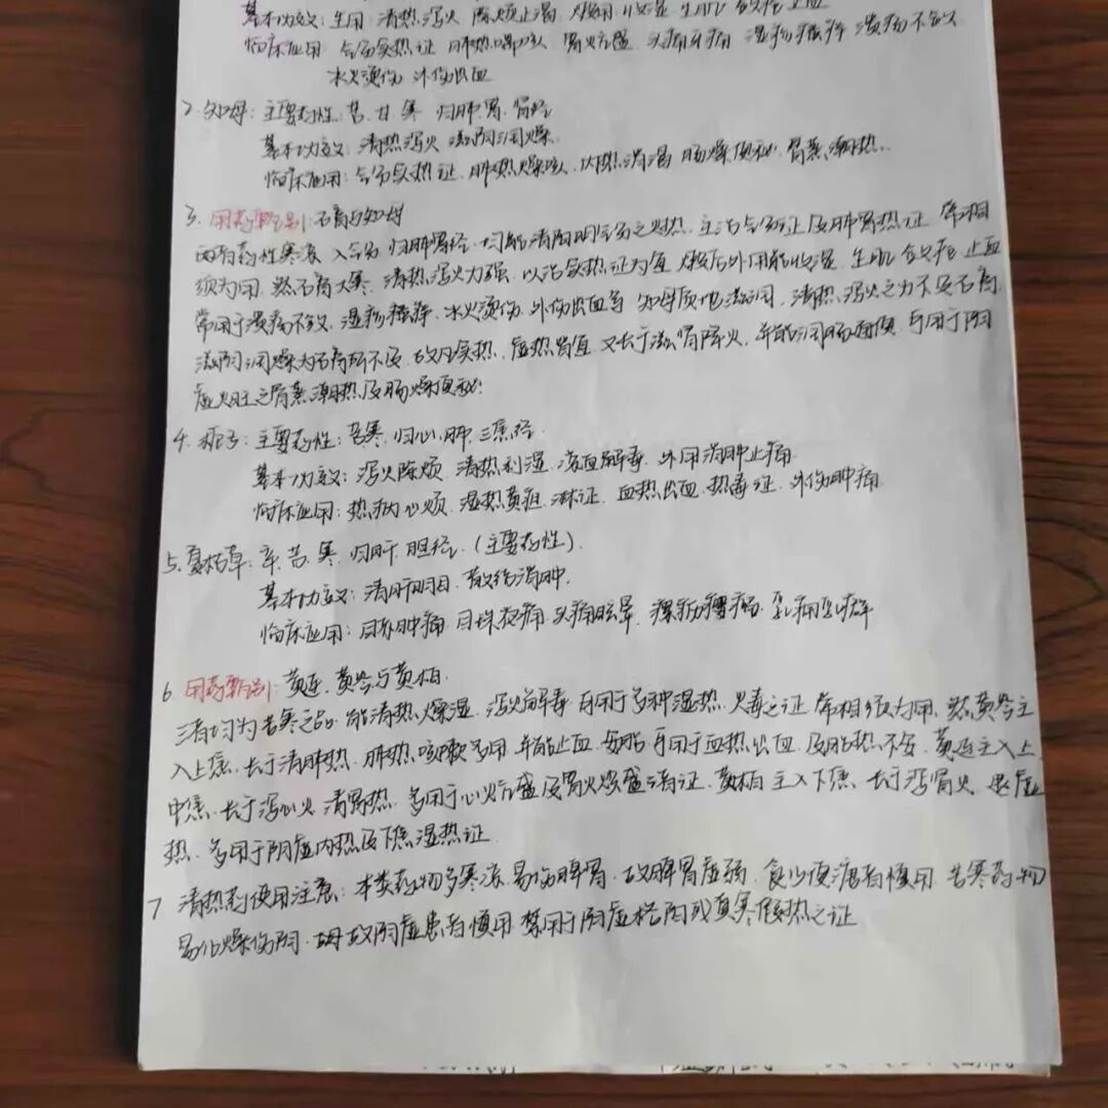 基本功效：生用：清热泻火 除烦止渴 煅用 收湿 生肌 敛疮 止血
临床应用 气分实热证 肺热喘咳 胃火亢盛 头痛牙痛 湿疹瘙痒 溃疡不敛
水火烫伤 外伤出血
2 知母：主要药性：苦 甘 寒 归肺 胃 肾经
基本功效：清热泻火 滋阴润燥
临床应用：气分实热证 肺热燥咳 内热消渴 肠燥便秘 骨蒸潮热
3 用药鉴别：石膏与知母
两者药性寒凉 入气分 归肺胃经 均能清阳明气分之热 主治气分证及肺胃热证 常相
须为用 然石膏大寒 清热泻火力强 以治实热证为宜 煅后外用能收湿 生肌 敛疮 止血
常用于溃疡不敛 湿疹瘙痒 水火烫伤 外伤出血等 知母质地滋润 清热泻火之力不及石膏
滋阴润燥为石膏所不及 故凡实热 虚热皆宜 又长于滋肾降火 并能润肠通便 可用于阴
虚火旺之骨蒸潮热及肠燥便秘
4 栀子：主要药性：苦寒 归心 肺 三焦经
基本功效：泻火除烦 清热利湿 凉血解毒 外用消肿止痛
临床应用：热病心烦 湿热黄疸 淋证 血热出血 热毒证 外伤肿痛
5 夏枯草：辛 苦 寒 归肝 胆经（主要药性）
基本功效：清肝明目 散结消肿
临床应用：目赤肿痛 目珠夜痛 头痛眩晕 瘰疬瘿瘤 乳痈乳癖
6 用药鉴别：黄连 黄芩与黄柏
三者均为苦寒之品 能清热燥湿 泻火解毒 可用于多种湿热 火毒之证 常相须为用 然黄芩主
入上焦 长于清肺热 肺热咳嗽多用 并能止血 安胎 可用于血热出血 及胎热不安 黄连主入上
中焦 长于泻心火 清胃热 多用于心火亢盛及胃火炽盛诸证 黄柏主入下焦 长于泻肾火 退虚
热 多用于阴虚内热及下焦湿热证
7 清热药使用注意：本类药物多寒凉 易伤脾胃 故脾胃虚弱 食少便溏者慎用 苦寒药物
易化燥伤阴 故阴虚患者慎用 禁用于阴虚格阳或真寒假热之证